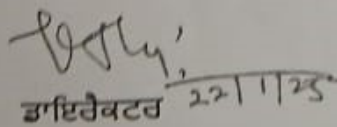 ਡਾਇਰੈਕਟਰ 22/1/25